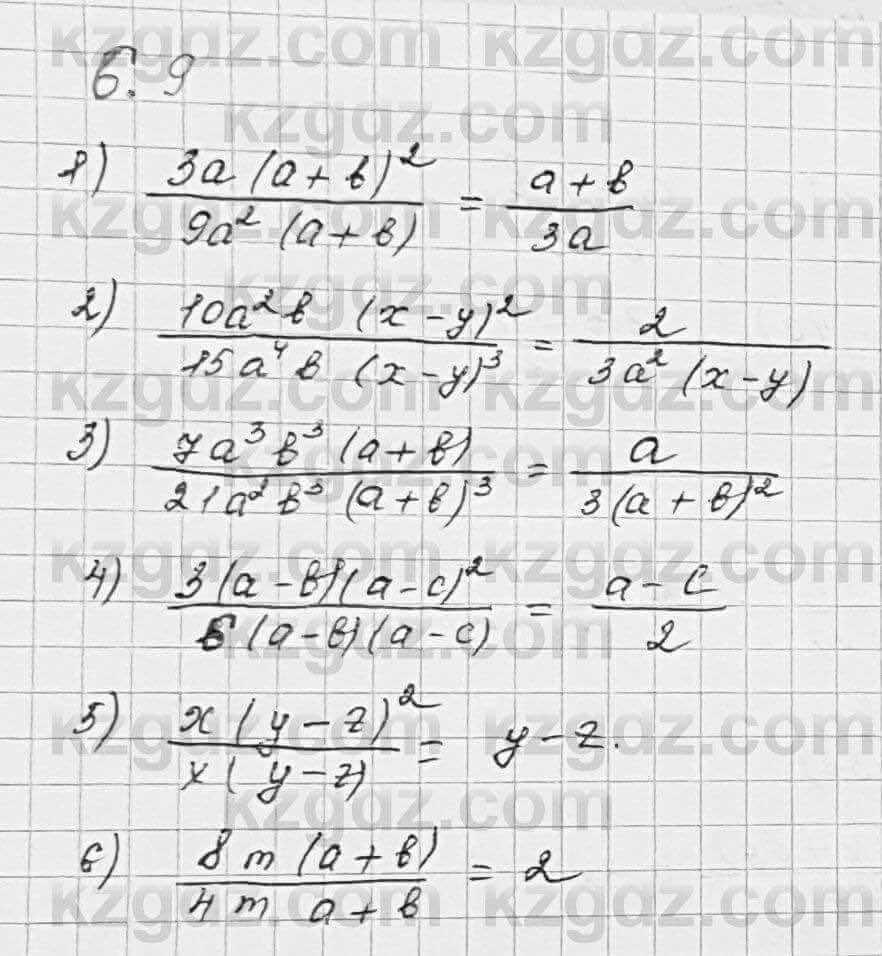 kzgaz.com kzgaz.com
6.9
kzgaz.com
1) 3a(a+b)² / 9a²(a+b) = a+b / 3a
kzgaz.com kzgaz.com
kzgaz.com
2) 10a²b (x-y)² / 15a⁴b (x-y)³ = 2 / 3a²(x-y)
kzgaz.com kzgaz.com
3) 7a³b³(a+b) / 21a²b³(a+b)³ = a / 3(a+b)²
kzgaz.com
kzgaz.com kzgaz.com
4) 3(a-b)(a-c)² / 6(a-b)(a-c) = a-c / 2
kzgaz.com
5) x(y-z)² / x(y-z) = y-z.
kzgaz.com kzgaz.com
kzgaz.com
6) 8m(a+b) / 4m a+b = 2
kzgaz.com kzgaz.com